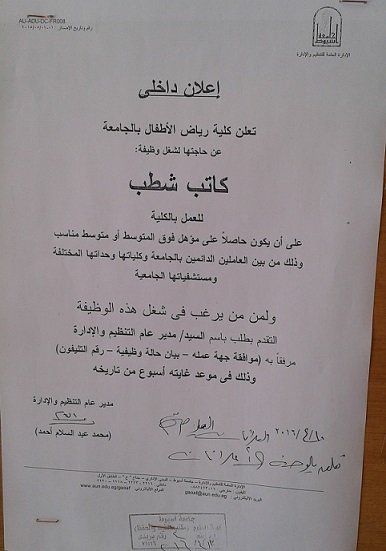 AU-ADU-DC-FR008
الإدارة العامة للتنظيم والإدارة
إعلان داخلى
تعلن كلية رياض الأطفال بالجامعة
عن حاجتها لشغل وظيفة:
كاتب شطب
للعمل بالكلية
على أن يكون حاصلاً على مؤهل فوق المتوسط أو متوسط مناسب
وذلك من بين العاملين الدائمين بالجامعة وكلياتها وحداتها المختلفة
ومستشفياتها الجامعية
ولمن من يرغب فى شغل هذه الوظيفة
التقدم بطلب باسم السيد/ مدير عام التنظيم والإدارة
مرفقاً به (موافقة جهة عمله – بيان حالة وظيفية – رقم التليفون)
وذلك فى موعد غايته أسبوع من تاريخه
مدير عام التنظيم والإدارة
(محمد عبد السلام أحمد)
٢٠١٦/٤/١٠